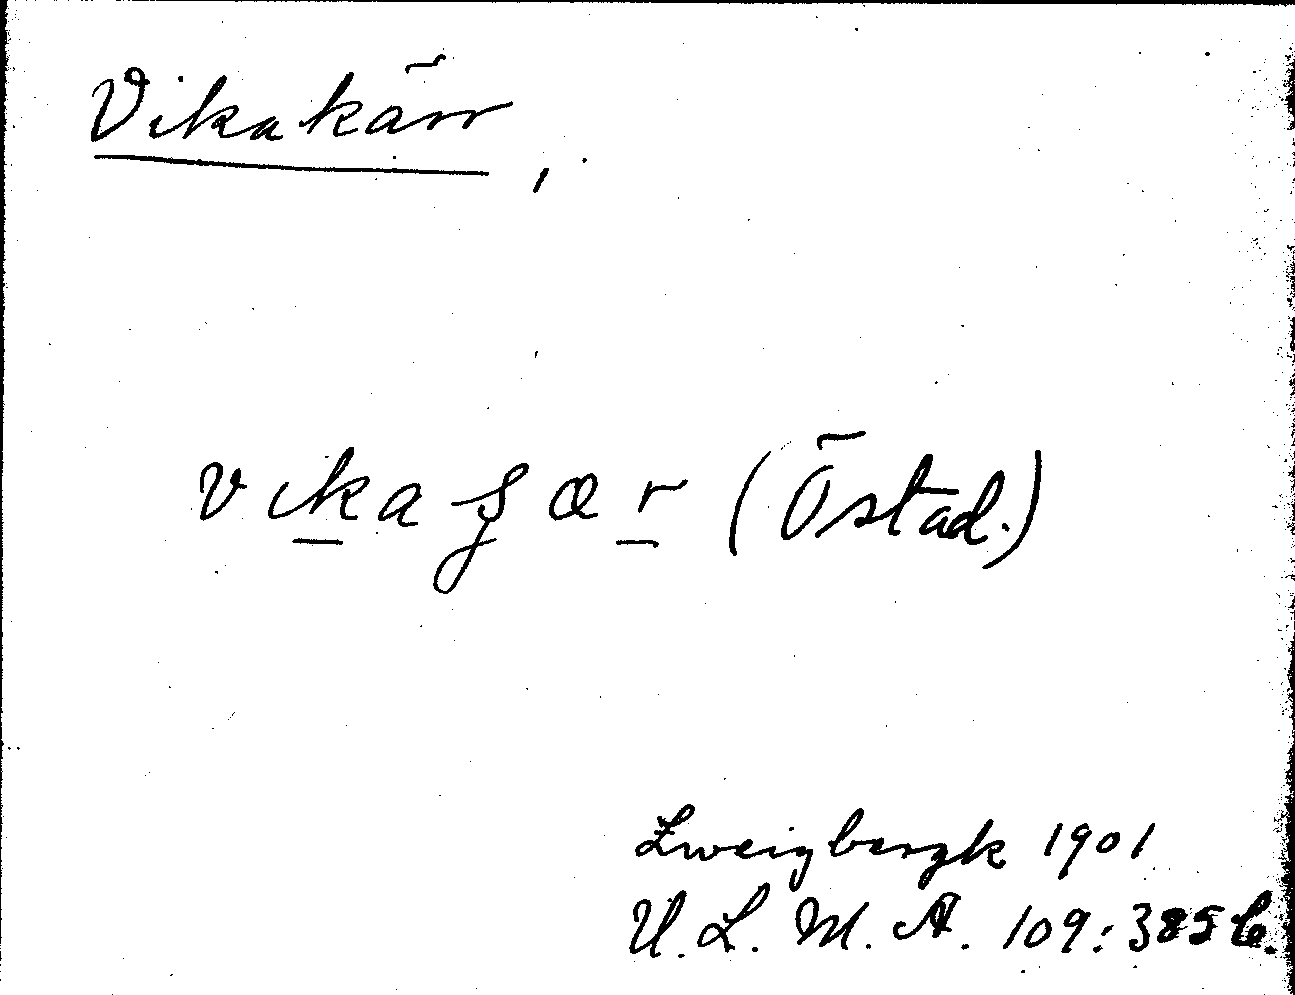 Vikakärr,
vika ʂ æ r (Östad.)
Zweigbergk 1901
U.L.M.A. 109:385 b.